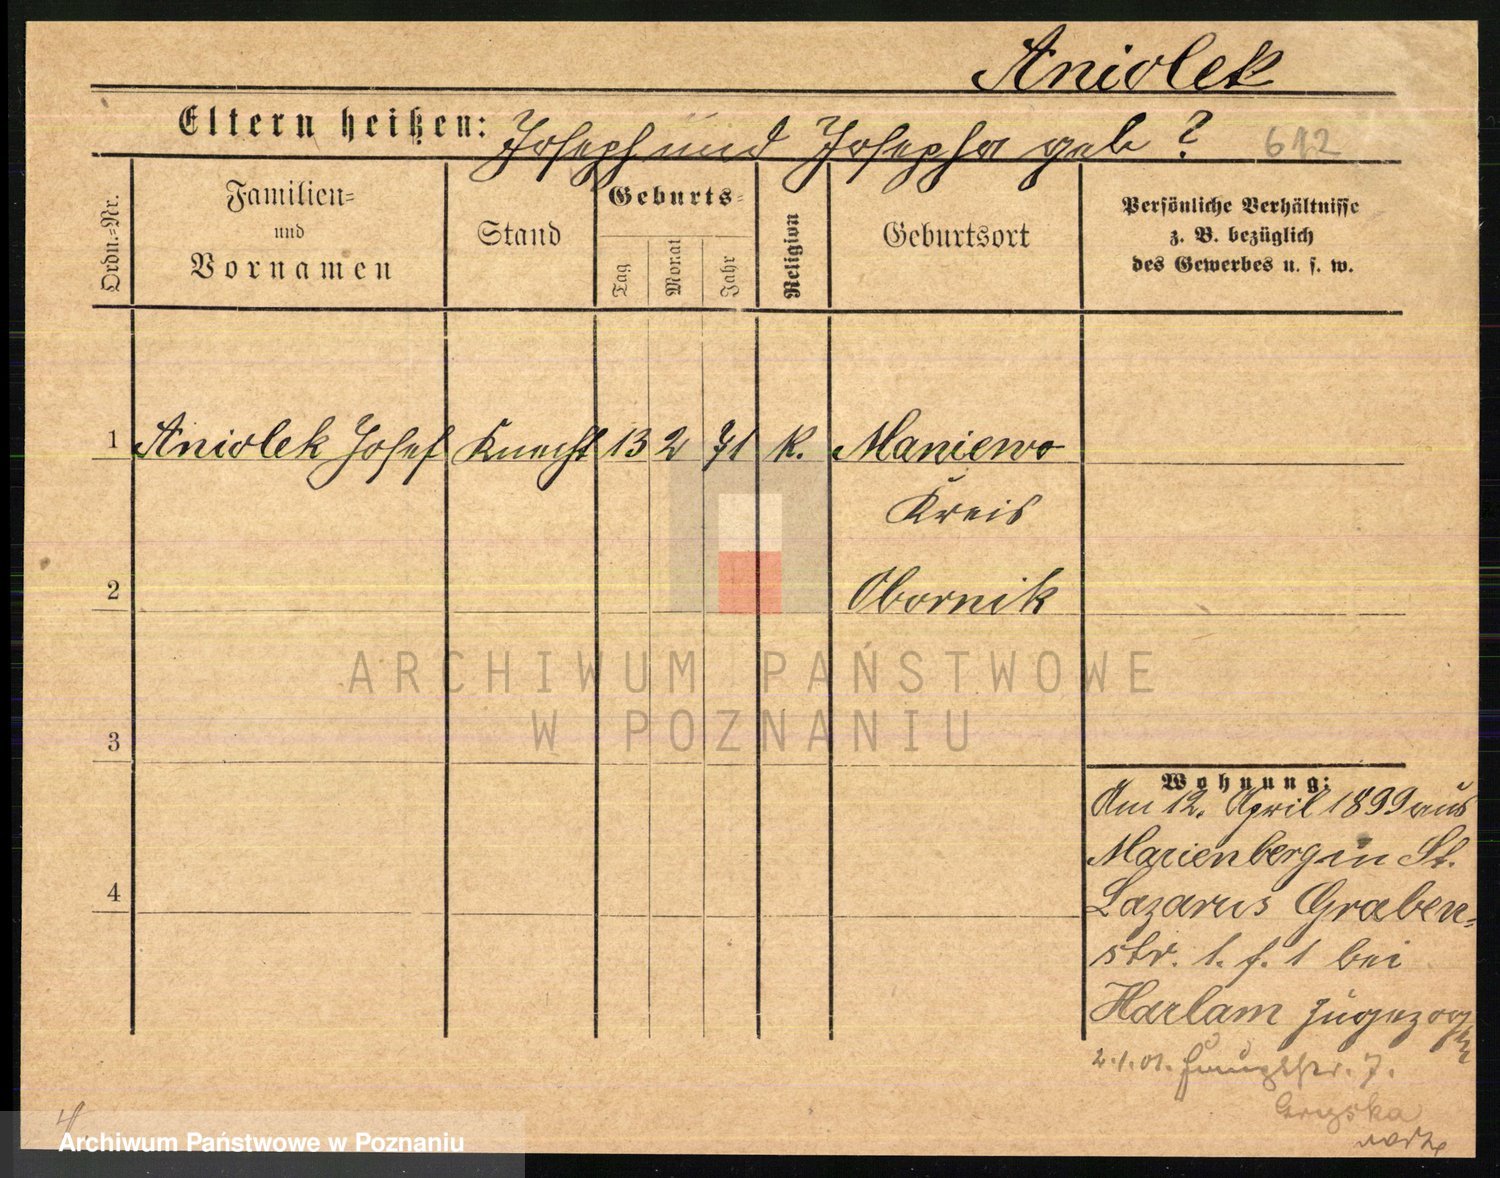 Aniolek
Eltern heißen: Joseph und Josepha geb ? 612
Ordn.=Nr.
Familien=
und
Vornamen
Stand
Geburts=
Tag
Monat
Jahr
Religion
Geburtsort
Persönliche Verhältnisse
z. B. bezüglich
des Gewerbes u. s. w.
1 Aniolek Josef Knecht 13 2 71 K. Maniewo
Kreis
2 Obornik
ARCHIWUM PAŃSTWOWE
W POZNANIU
3
4
Wohnung:
Am 12. April 1899 aus
Marienberg in St.
Lazarus Graben-
str. 1. f. 1 bei
Harlam zugezogen
2.1.01. 7.
Archiwum Państwowe w Poznaniu